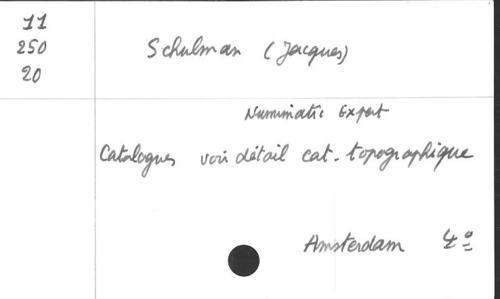 11
250
20
Schulman (Jacques)
Numismatic Expert
Catalogues voir détail cat. topographique
Amsterdam 4º